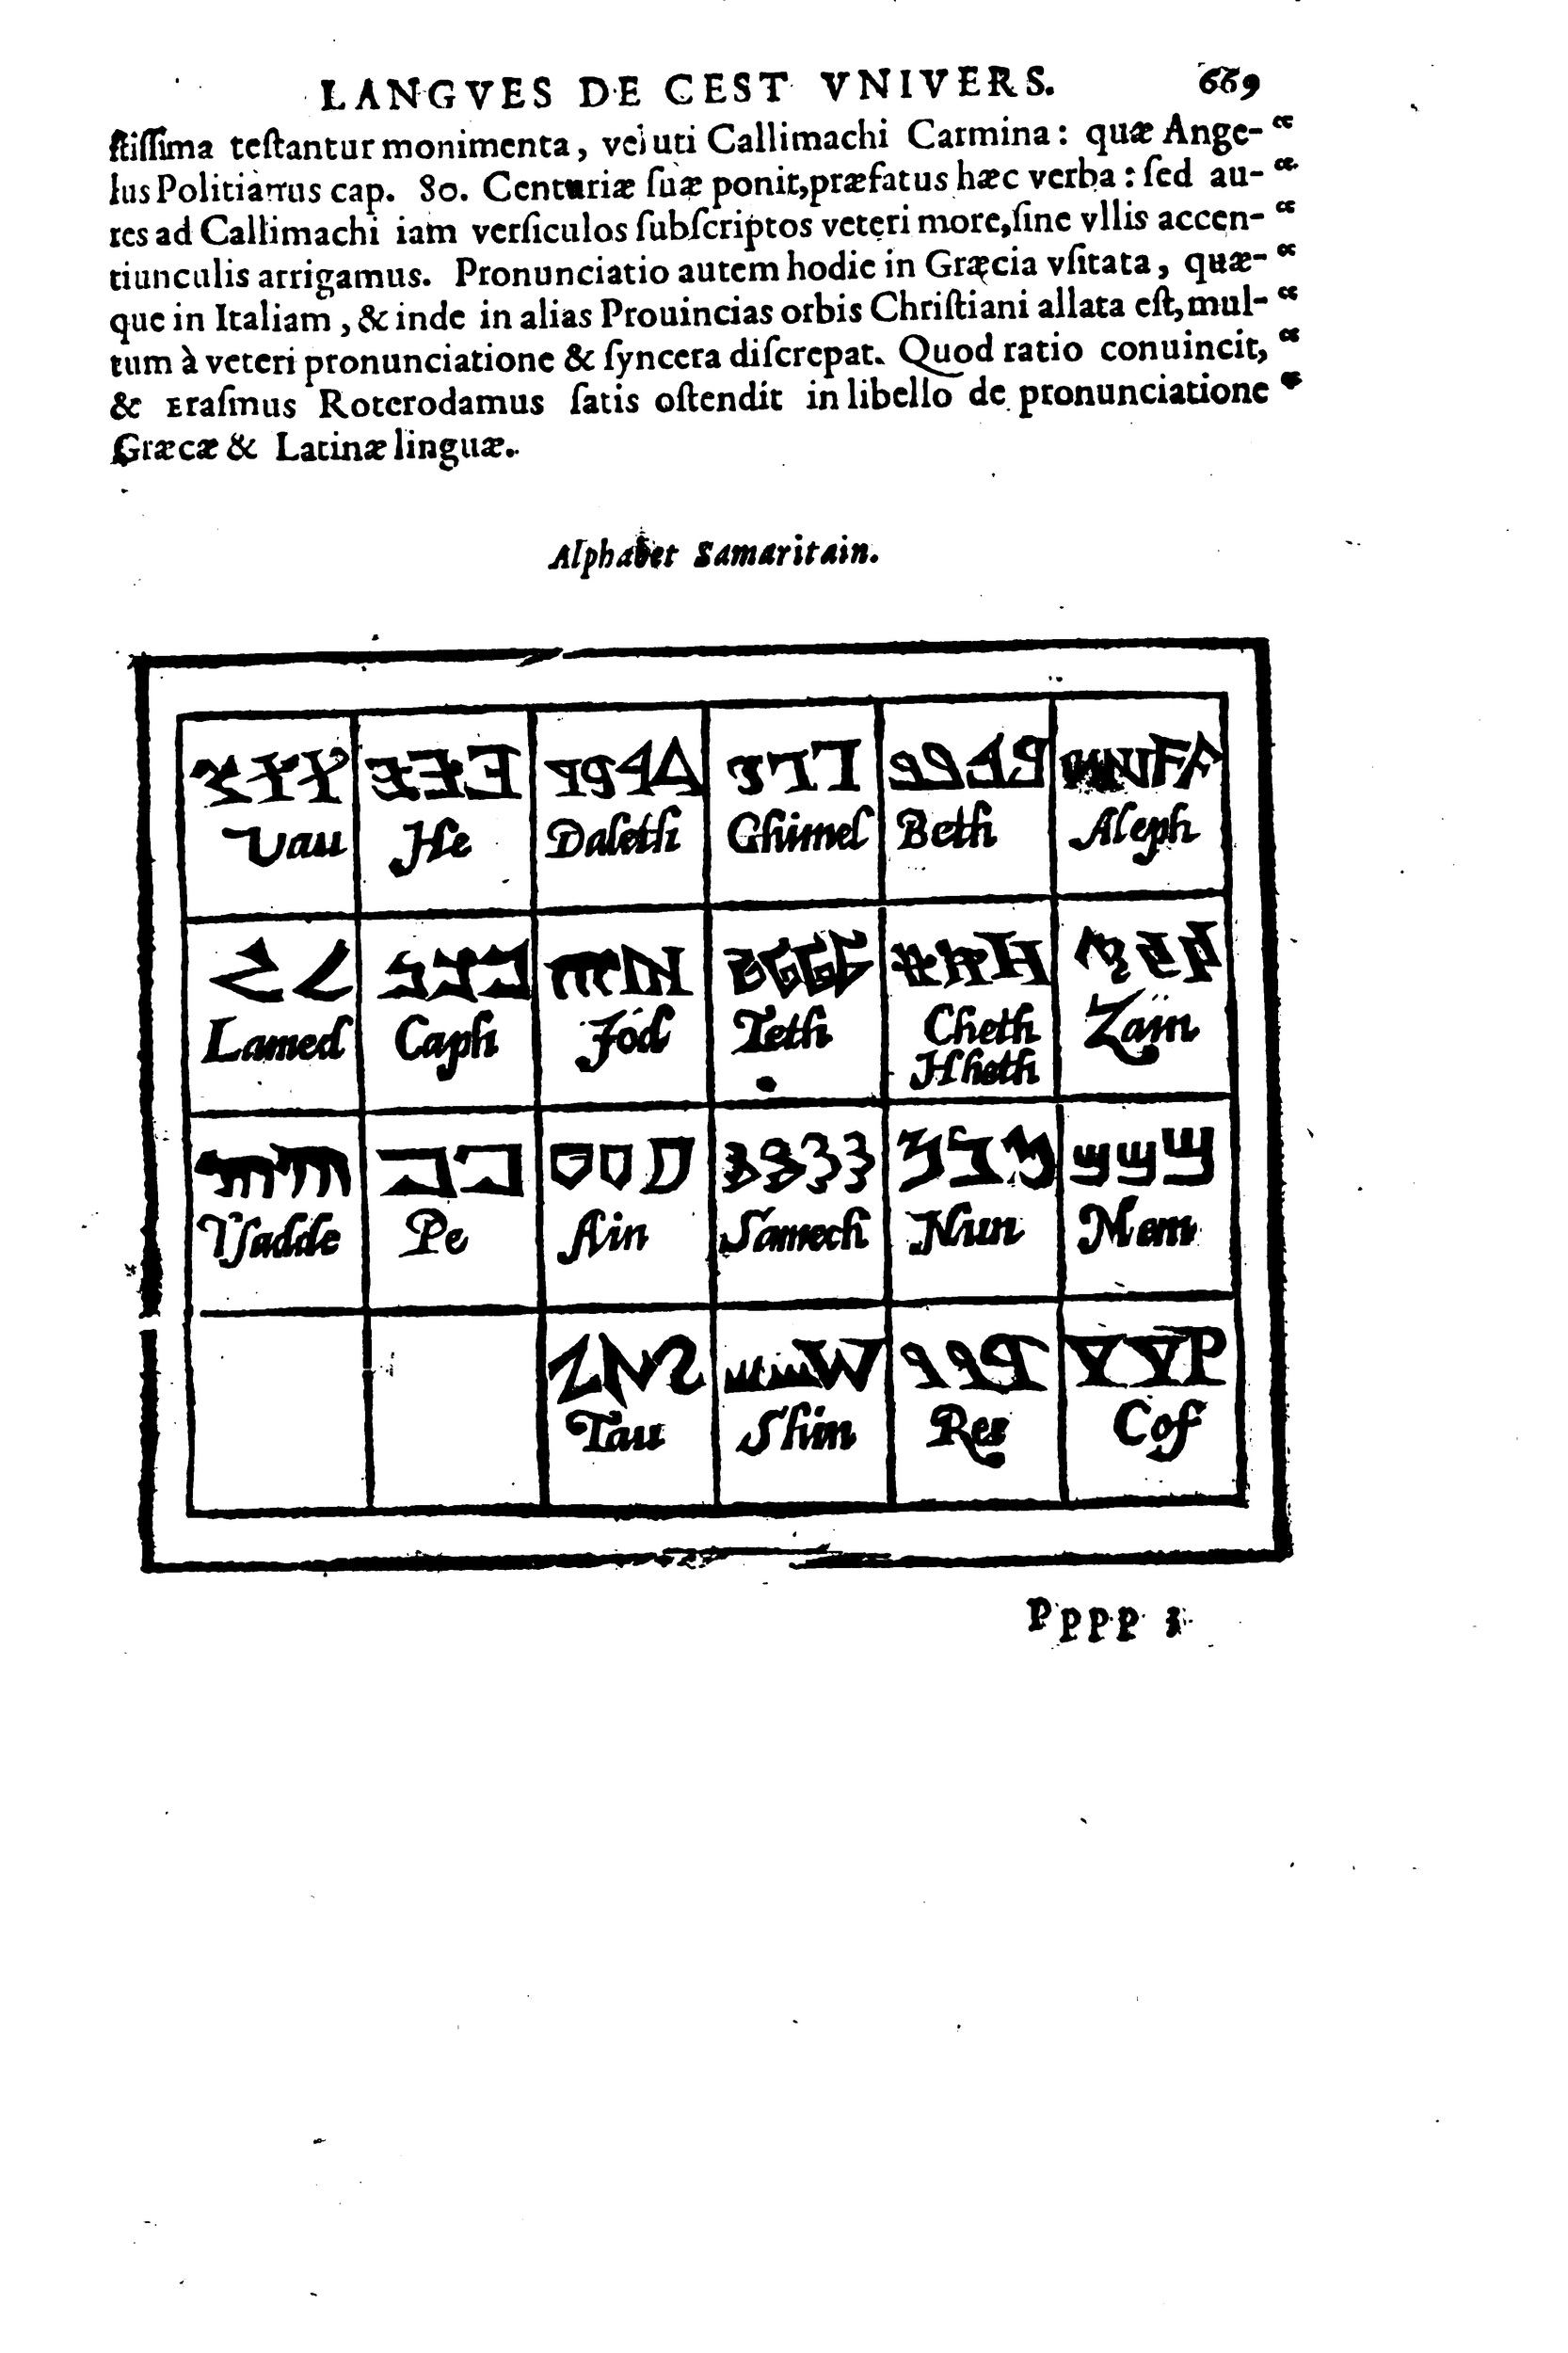 LANGVES DE CEST VNIVERS. 669
ſtiſſima teſtantur monimenta, veluti Callimachi Carmina: quæ Ange- “
lus Politianus cap. 80. Centuriæ ſuæ ponit, præfatus hæc verba: ſed au- “
res ad Callimachi iam verſiculos ſubſcriptos veteri more, ſine vllis accen- “
tiunculis arrigamus. Pronunciatio autem hodie in Græcia vſitata, quæ- “
que in Italiam, & inde in alias Prouincias orbis Chriſtiani allata eſt, mul- “
tum à veteri pronunciatione & ſyncera diſcrepat. Quod ratio conuincit, “
& Eraſmus Roterodamus ſatis oſtendit in libello de pronunciatione “
Græcæ & Latinæ linguæ.
Alphabet Samaritain.
Vau He Daleth Ghimel Beth Aleph
Lamed Caph Jod Teth Cheth Zain
Hheth
Tſadde Pe Ain Samech Nun Mem
Tau Shin Res Cof
Pppp 3